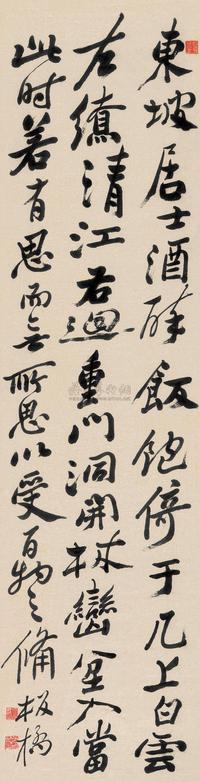 東坡居士酒醉飯飽倚于几上白雲
左繚清江右迴重門洞開林巒坌入當
此时若有思而無所思以受百物之備 板橋